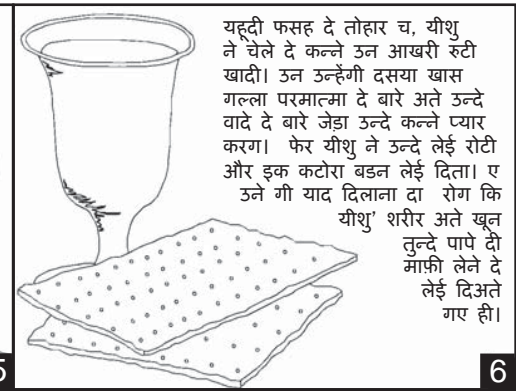 यहूदी फसह दे तोहार च, यीशु
ने चेले दे कन्ने उन आखरी रुटी
खादी। उन उन्हेंगी दसया खास
गल्ला परमात्मा दे बारे अते उन्दे
वादे दे बारे जेड़ा उन्दे कन्ने प्यार
करग। फेर यीशु ने उन्दे लेई रोटी
और इक कटोरा बडन लेई दिता। ए
उने गी याद दिलाना दा रोग कि
यीशु' शरीर अते खून
तुन्दे पापे दी
माफ़ी लेने दे
लेई दिअते
गए ही।
5
6